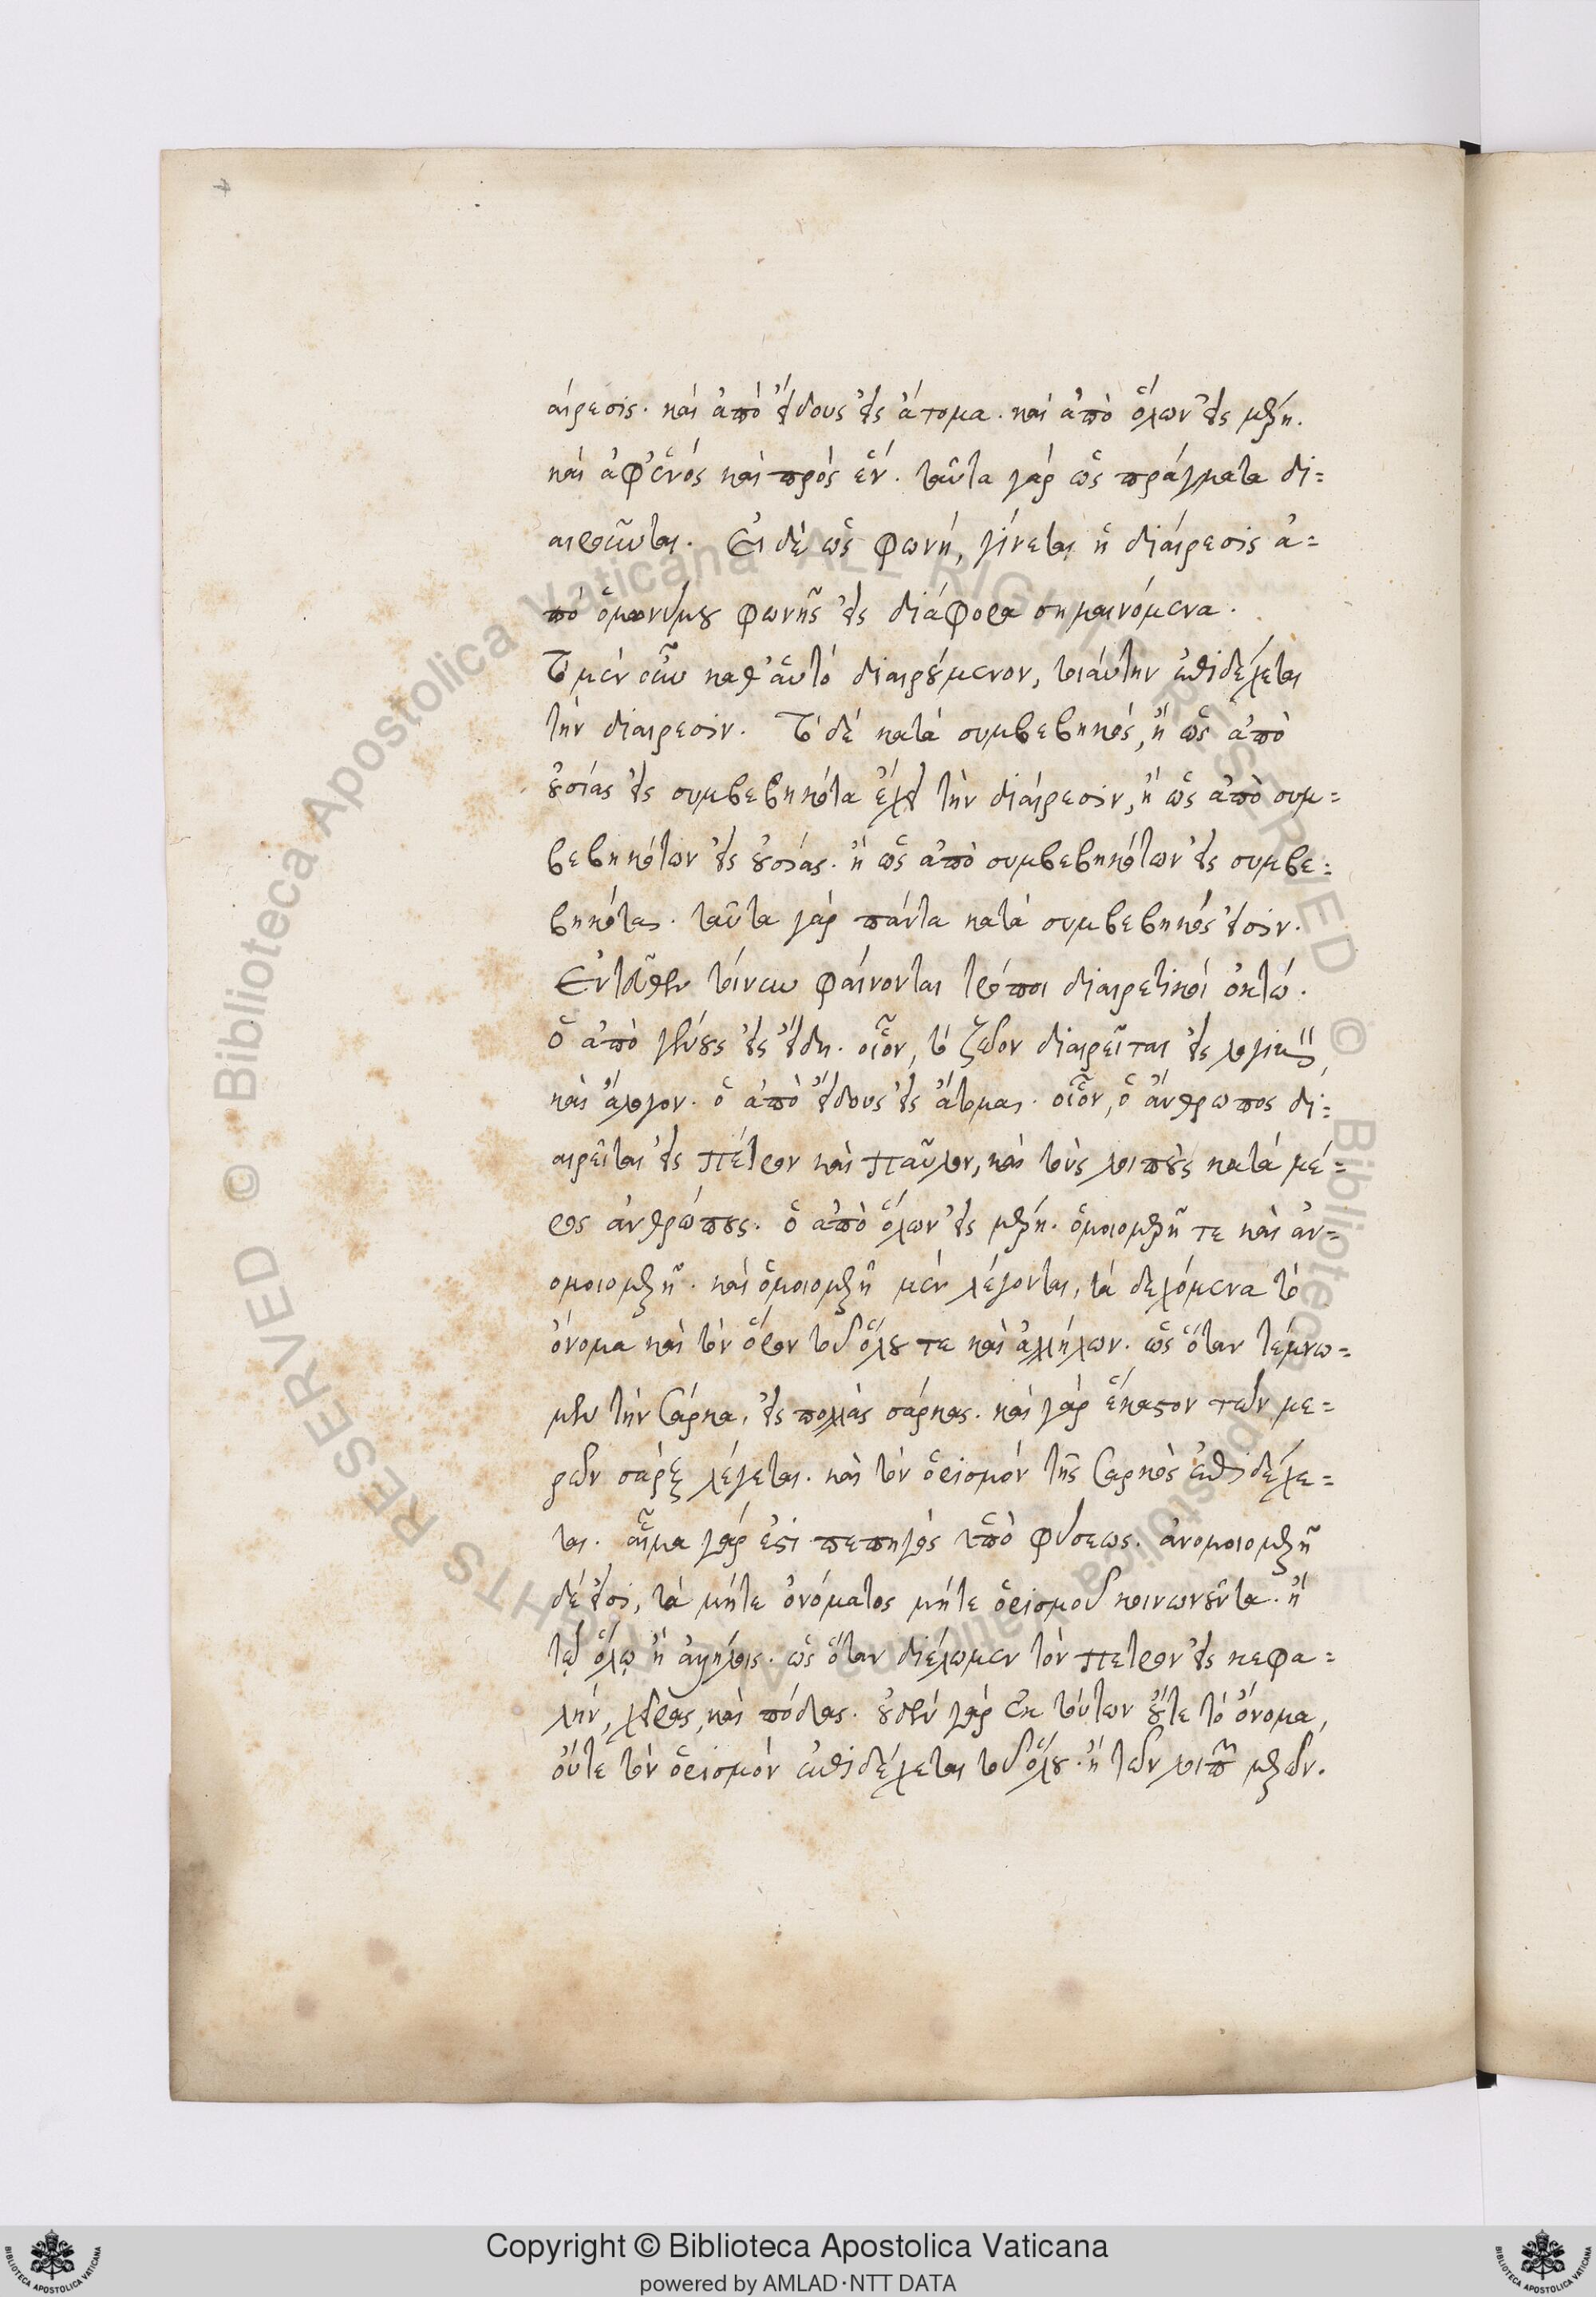 αίρεσις. καὶ ἀπὸ εἴδους εἰς ἄτομα. καὶ ἀπὸ ὅλων εἰς μέρη.
καὶ ἀφ' ἑνός καὶ πρὸς ἕν. ταῦτα γὰρ ὡς πράγματα δι=
αιροῦνται. Εἰ δὲ ὡς φωνή, γίνεται ἡ διαίρεσις ἀ=
πό ὁμωνύμου φωνῆς εἰς διάφορα σημαινόμενα.
Τὸ μὲν οὖν καθ' αὑτό διαιρούμενον, τοιαύτην ἐπιδέχεται
τὴν διαίρεσιν. Τὸ δὲ κατὰ συμβεβηκός, ἢ ὡς ἀπὸ
οὐσίας εἰς συμβεβηκότα ἔχει τὴν διαίρεσιν, ἢ ὡς ἀπὸ συμ=
βεβηκότων εἰς οὐσίας. ἢ ὡς ἀπὸ συμβεβηκότων εἰς συμβε=
βηκότα. ταῦτα γὰρ πάντα κατὰ συμβεβηκός εἰσιν.
Ἐντεῦθεν τοίνυν φαίνονται τρόποι διαιρετικοί ὀκτώ.
ὁ ἀπὸ γένους εἰς εἴδη. οἷον, τὸ ζῶον διαιρεῖται εἰς λογικὸν,
καὶ ἄλογον. ὁ ἀπὸ εἴδους εἰς ἄτομα. οἷον, ὁ ἄνθρωπος δι=
αιρεῖται εἰς Πέτρον καὶ Παῦλον, καὶ τοὺς λοιποὺς κατὰ μέ=
ρος ἀνθρώπους. ὁ ἀπὸ ὅλων εἰς μέρη. ὁμοιομερῆ τε καὶ ἀν=
ομοιομερῆ. καὶ ὁμοιομερῆ μὲν λέγονται, τὰ δεχόμενα τὸ
ὄνομα καὶ τὸν ὅρον τοῦ ὅλου τε καὶ ἀλλήλων. ὡς ὅταν τέμνω=
μεν τὴν σάρκα, εἰς πολλὰς σάρκας. καὶ γὰρ ἕκαστον τῶν με=
ρῶν σάρξ λέγεται. καὶ τὸν ὁρισμόν τῆς σαρκὸς ἐπιδέχε=
ται. αἷμα γάρ ἐστι πεπηγὸς ὑπὸ φύσεως. ἀνομοιομερῆ
δέ εἰσι, τὰ μήτε ὀνόματος μήτε ὁρισμοῦ κοινωνοῦντα. ἢ
τῷ ὅλῳ ἢ ἀλλήλοις. ὡς ὅταν διέλωμεν τὸν Πέτρον εἰς κεφα=
λήν, χεῖρας, καὶ πόδας. οὐδὲν γὰρ ἐκ τούτων οὔτε τὸ ὄνομα,
οὔτε τὸν ὁρισμὸν ἐπιδέχεται τοῦ ὅλου. ἢ τῶν λοιπῶν μερῶν.